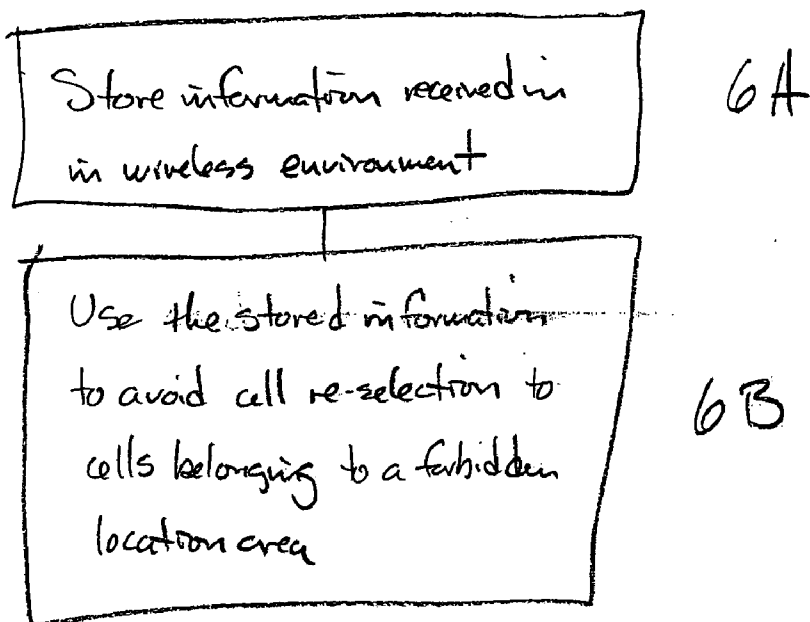 Store information received in
in wireless environment
6A
Use the stored information
to avoid cell re-selection to
cells belonging to a forbidden
location area
6B